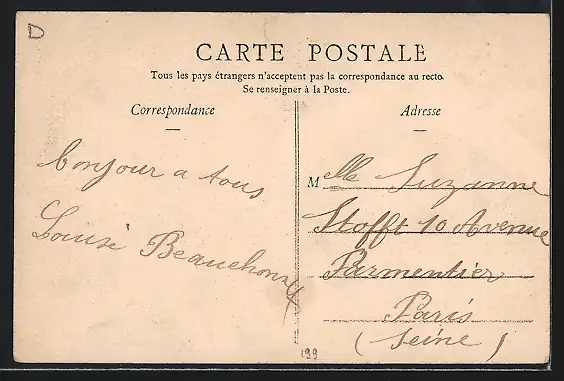 D
CARTE POSTALE
Tous les pays étrangers n'acceptent pas la correspondance au recto.
Se renseigner à la Poste.
Correspondance
Adresse
bonjour a tous
Louise
Melle Suzanne
Stofft 10 Avenue
Parmentier
Paris
(Seine)
199